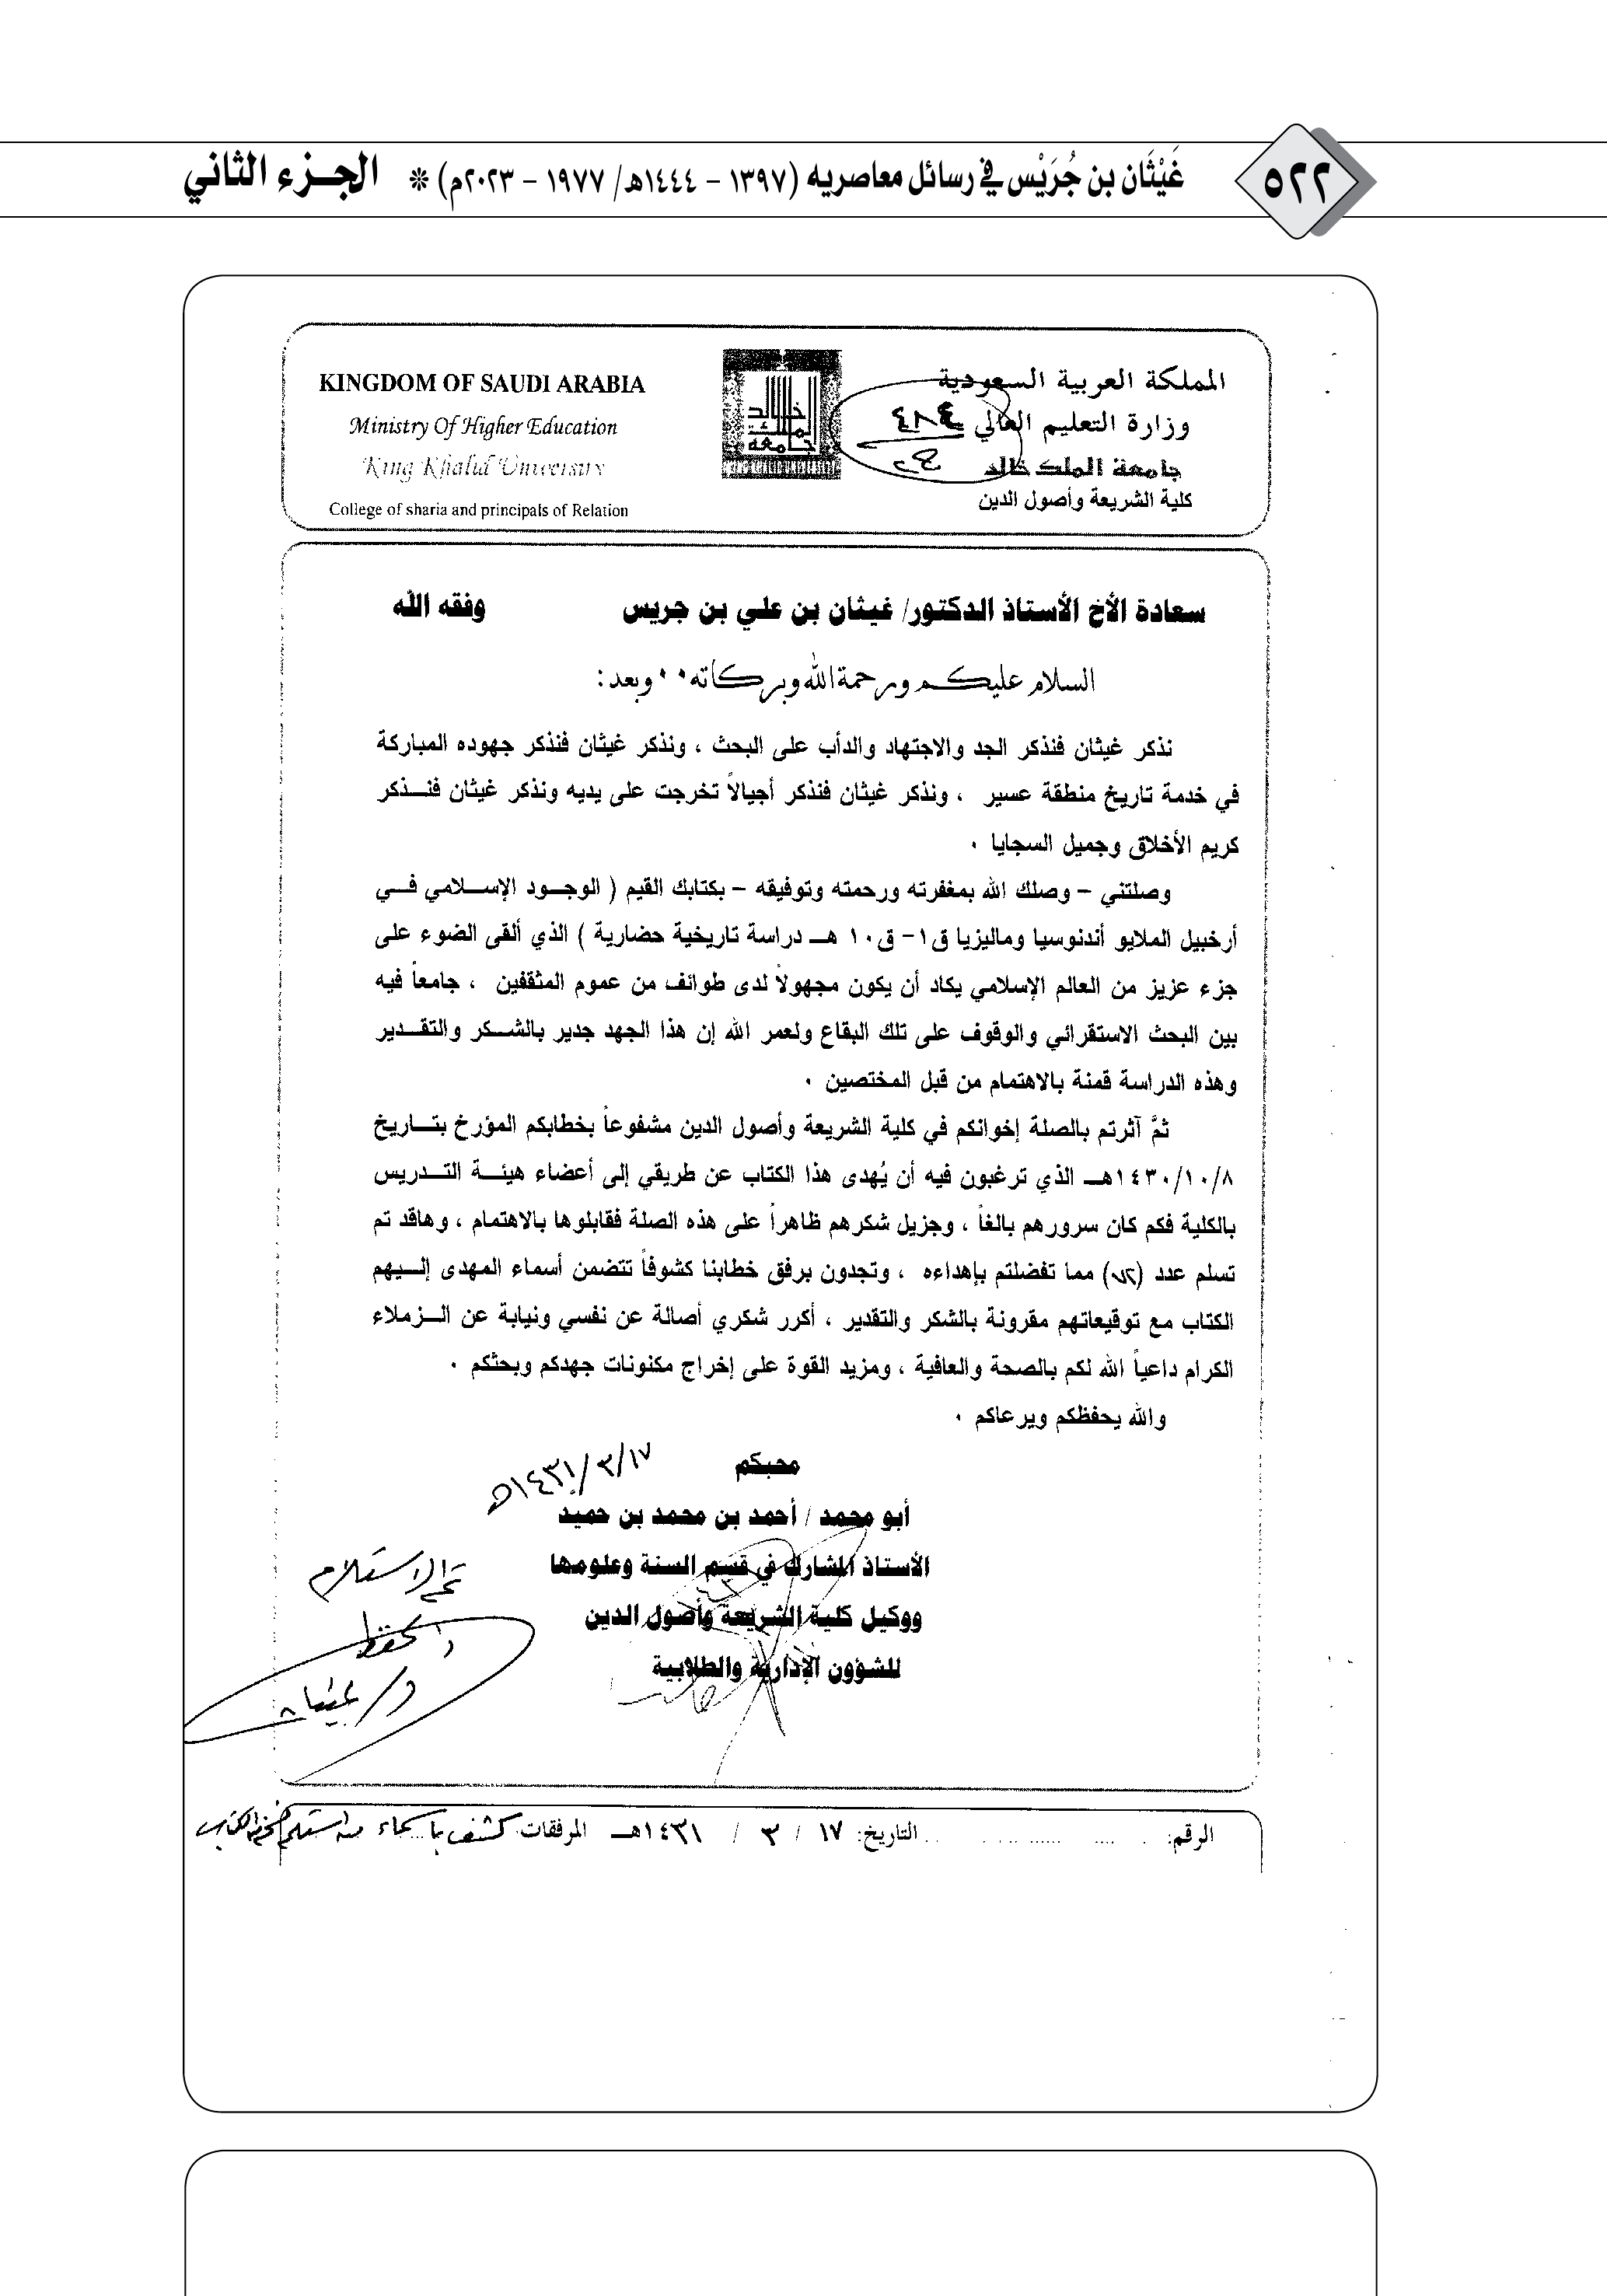 ٥٢٢
غَيْثَان بن جُرَيْس في رسائل معاصريه (١٣٩٧ – ١٤٤٤هـ/ ١٩٧٧ – ٢٠٢٣م) * الجـزء الثاني
المملكة العربية السعودية
وزارة التعليم العالي
جامعة الملك خالد
كلية الشريعة وأصول الدين
٤٨٤
جامعة الملك خالد
KINGDOM OF SAUDI ARABIA
Ministry Of Higher Education
King Khalid University
College of sharia and principals of Relation
سعادة الأخ الأستاذ الدكتور/ غيثان بن علي بن جريس وفقه الله
السلام عليكم ورحمة الله وبركاته ٠٠ وبعد :
نذكر غيثان فنذكر الجد والاجتهاد والدأب على البحث ، ونذكر غيثان فنذكر جهوده المباركة
في خدمة تاريخ منطقة عسير ، ونذكر غيثان فنذكر أجيالاً تخرجت على يديه ونذكر غيثان فنـــذكر
كريم الأخلاق وجميل السجايا ٠
وصلتني – وصلك الله بمغفرته ورحمته وتوفيقه – بكتابك القيم ( الوجــود الإســلامي فــي
أرخبيل الملايو أندنوسيا وماليزيا ق١- ق١٠ هـ دراسة تاريخية حضارية ) الذي ألقى الضوء على
جزء عزيز من العالم الإسلامي يكاد أن يكون مجهولاً لدى طوائف من عموم المثقفين ، جامعاً فيه
بين البحث الاستقرائي والوقوف على تلك البقاع ولعمر الله إن هذا الجهد جدير بالشــكر والتقــدير
وهذه الدراسة قمنة بالاهتمام من قبل المختصين ٠
ثمَّ آثرتم بالصلة إخوانكم في كلية الشريعة وأصول الدين مشفوعاً بخطابكم المؤرخ بتـــاريخ
١٤٣٠/١٠/٨هـ الذي ترغبون فيه أن يُهدى هذا الكتاب عن طريقي إلى أعضاء هيئــة التــدريس
بالكلية فكم كان سرورهم بالغاً ، وجزيل شكرهم ظاهراً على هذه الصلة فقابلوها بالاهتمام ، وهاقد تم
تسلم عدد ( ) مما تفضلتم بإهداءه ، وتجدون برفق خطابنا كشوفاً تتضمن أسماء المهدى إلـــيهم
الكتاب مع توقيعاتهم مقرونة بالشكر والتقدير ، أكرر شكري أصالة عن نفسي ونيابة عن الــزملاء
الكرام داعياً الله لكم بالصحة والعافية ، ومزيد القوة على إخراج مكنونات جهدكم وبحثكم ٠
والله يحفظكم ويرعاكم ٠
محبكم
١٤٣١/٣/١٧هـ
أبو محمد / أحمد بن محمد بن حميد
الأستاذ المشارك في قسم السنة وعلومها
ووكيل كلية الشريعة وأصول الدين
للشؤون الإدارية والطلابية
تم الاستلام
د/ غيثان
الرقم: التاريخ: ١٧ / ٣ / ١٤٣١هـ المرفقات: كشف بأسماء من استلم نسخة الكتاب